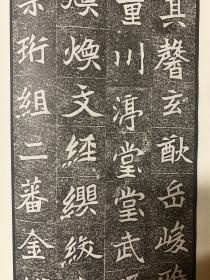 其馨玄猷岳峻
重川渟堂堂武
煥文經纓紱
珩組二蕃金